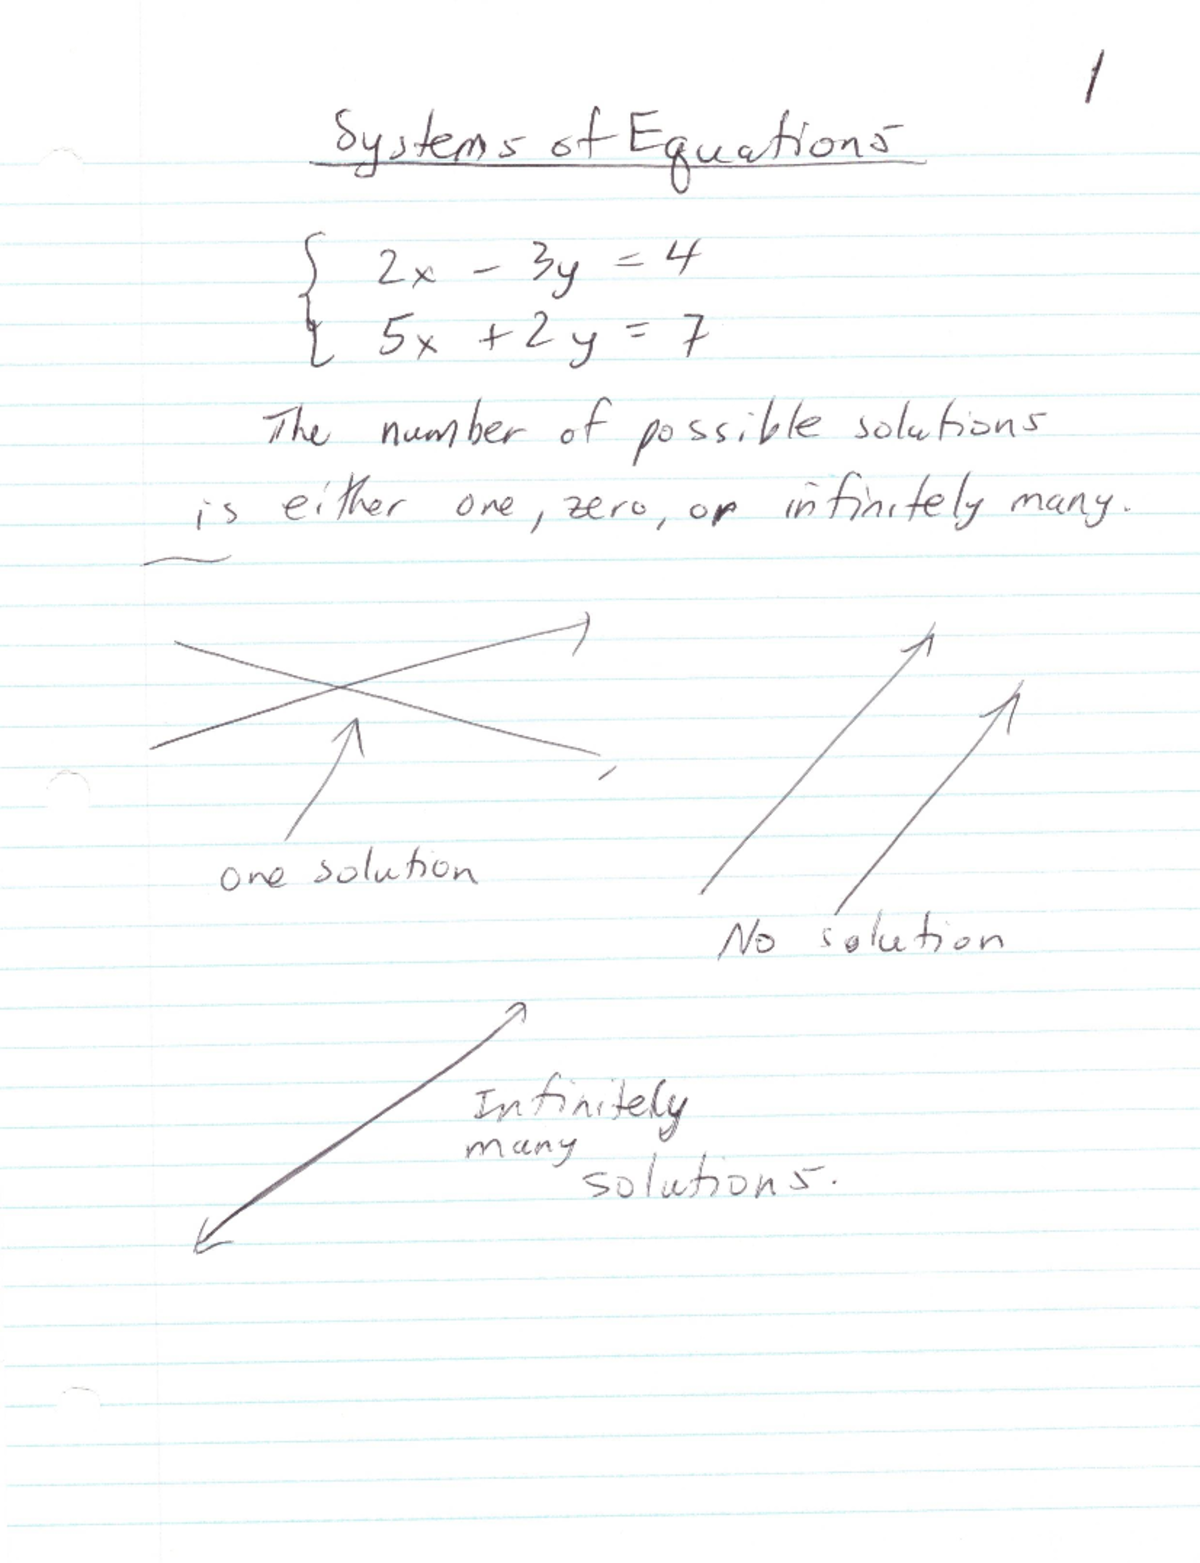 1
Systems of Equations
2x - 3y = 4
5x + 2y = 7
The number of possible solutions
is either one, zero, or infinitely many.
one solution
No solution
Infinitely
many
solutions.